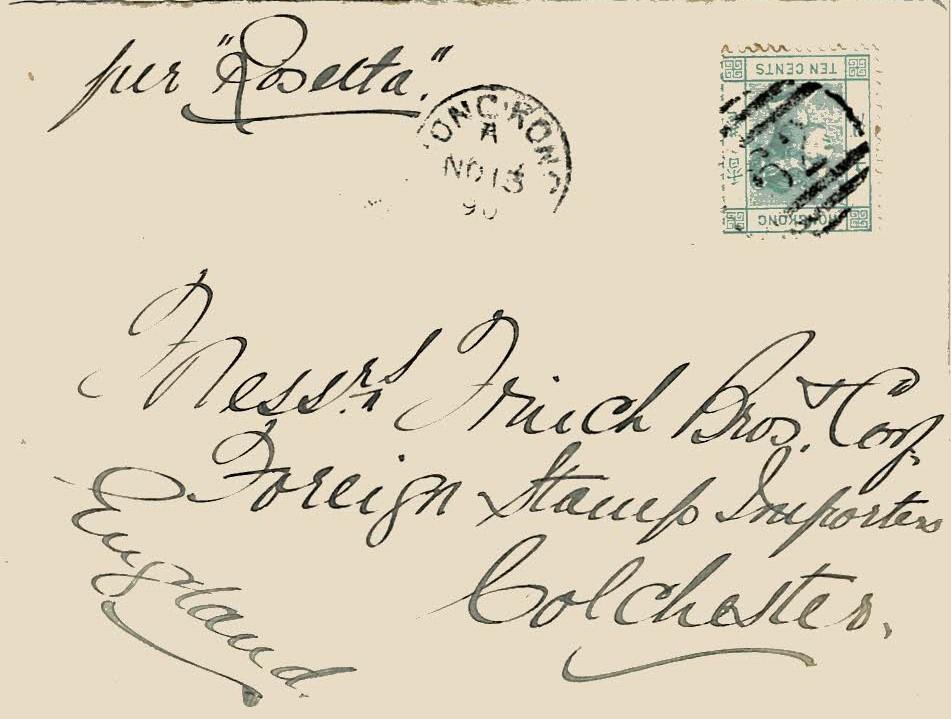 per "Rosetta".
HONG KONG
A
NO 13
90
TEN CENTS
HONGKONG
Messrs. Finch Bros. & Coy.
Foreign Stamp Importers
Colchester.
England.